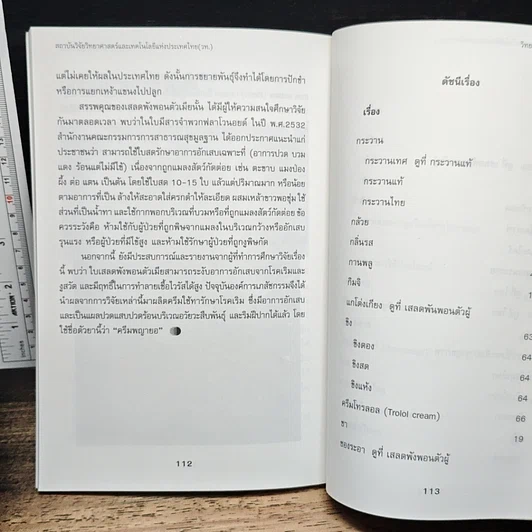 สถาบันวิจัยวิทยาศาสตร์และเทคโนโลยีแห่งประเทศไทย(วท.)
แต่ไม่เคยให้ผลในประเทศไทย ดังนั้นการขยายพันธุ์จึงทำได้โดยการปักชำ
หรือการแยกเหง้าแขนงไปปลูก
สรรพคุณของเสลดพังพอนตัวเมียนั้น ได้มีผู้ให้ความสนใจศึกษาวิจัย
กันมาตลอดเวลา พบว่าในใบมีสารจำพวกฟลาโวนอยด์ ในปี พ.ศ.2532
สำนักงานคณะกรรมการการสาธารณสุขมูลฐาน ได้ออกประกาศแนะนำแก่
ประชาชนว่า สามารถใช้ใบสดรักษาอาการอักเสบเฉพาะที่ (อาการปวด บวม
แดง ร้อนแต่ไม่มีไข้) เนื่องจากถูกแมลงสัตว์กัดต่อย เช่น ตะขาบ แมงป่อง
ผึ้ง ต่อ แตน เป็นต้น โดยใช้ใบสด 10-15 ใบ แล้วแต่ปริมาณมาก หรือน้อย
ตามอาการที่เป็น ล้างให้สะอาดใส่ครกตำให้ละเอียด ผสมเหล้าขาวพอชุ่ม ใช้
ส่วนที่เป็นน้ำทา และใช้กากพอกบริเวณที่บวมหรือที่ถูกแมลงสัตว์กัดต่อย ข้อ
ควรระวังคือ ห้ามใช้กับผู้ป่วยที่ถูกพิษจากแมลงในบริเวณกว้างหรืออักเสบ
รุนแรง หรือผู้ป่วยที่มีไข้สูง และห้ามใช้รักษาผู้ป่วยที่ถูกงูพิษกัด
นอกจากนี้ ยังมีประสบการณ์และรายงานจากผู้ที่ทำการศึกษาวิจัยเรื่อง
นี้ พบว่า ใบเสลดพังพอนตัวเมียสามารถระงับอาการอักเสบจากโรคเริมและ
งูสวัด และมีฤทธิ์ในการทำลายเชื้อไวรัสได้สูง ปัจจุบันองค์การเภสัชกรรมจึงได้
นำผลจากการวิจัยเหล่านี้มาผลิตครีมใช้ทารักษาโรคเริม ซึ่งมีอาการอักเสบ
และเป็นแผลปวดแสบปวดร้อนบริเวณอวัยวะสืบพันธุ์ และริมฝีปากได้แล้ว โดย
ใช้ชื่อตัวยานี้ว่า “ครีมพญายอ”
112
วิทย
ดัชนีเรื่อง
เรื่อง
กระวาน
กระวานเทศ ดูที่ กระวานแท้
กระวานแท้
กระวานไทย
กล้วย
กลิ่นรส
กานพลู
กิมจิ
แกโต่งเกียง ดูที่ เสลดพันพอนตัวผู้
ขิง 63
ขิงดอง 64
ขิงสด 64
ขิงแห้ง 64
ครีมโทรลอล (Trolol cream) 66
ชา 19
ชองระอา ดูที่ เสลดพังพอนตัวผู้
113